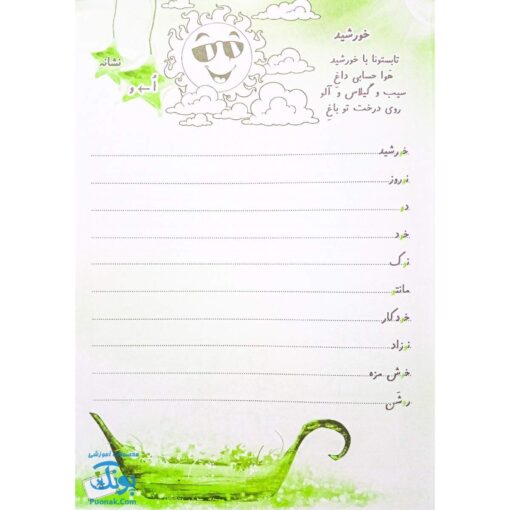 خورشید
تابستونا با خورشید
هَوا حسابی داغِ
سیب و گیلاس و آلو
روی درخت تو باغِ
نشانه
اُ ← و
خورشید
نوروز
دو
خود
نوک
مانتو
خودکار
نوزاد
خوش مزه
روشَن
مجموعه آموزشی
پونک
Poonak.Com